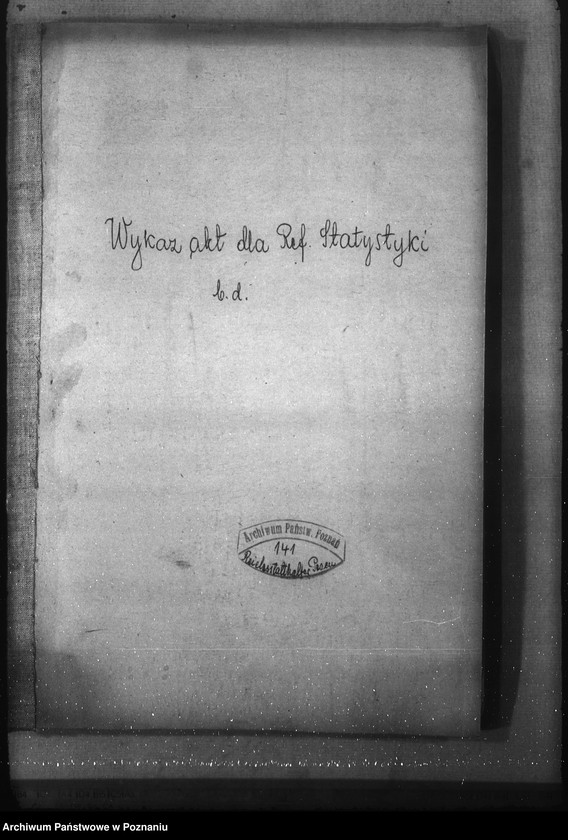 Wykaz akt dla Ref. Statystyki
b.d.
Archiwum Państw. Poznań
141
Reichsstatthalter Posen
Archiwum Państwowe w Poznaniu